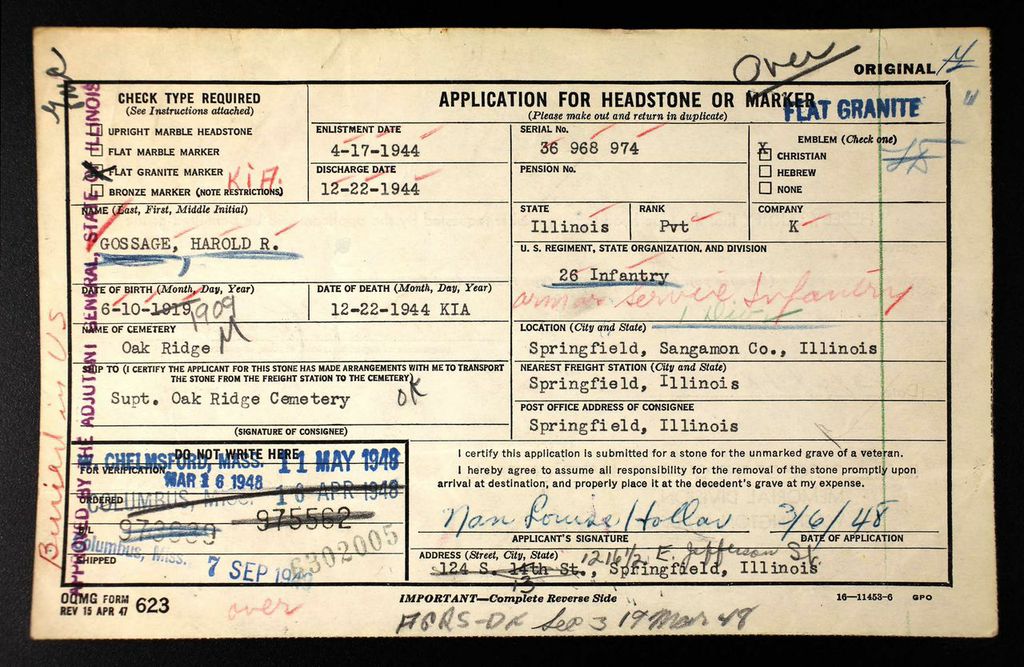 Over
ORIGINAL
CHECK TYPE REQUIRED
(See Instructions attached)
UPRIGHT MARBLE HEADSTONE
FLAT MARBLE MARKER
X FLAT GRANITE MARKER
BRONZE MARKER (NOTE RESTRICTIONS)
KIA.
APPLICATION FOR HEADSTONE OR MARKER
(Please make out and return in duplicate)
FLAT GRANITE
ENLISTMENT DATE
4-17-1944
DISCHARGE DATE
12-22-1944
SERIAL No.
36 968 974
PENSION No.
EMBLEM (Check one)
X CHRISTIAN
HEBREW
NONE
NAME (Last, First, Middle Initial)
GOSSAGE, HAROLD R.
STATE
Illinois
RANK
Pvt
COMPANY
K
U. S. REGIMENT, STATE ORGANIZATION, AND DIVISION
26 Infantry
DATE OF BIRTH (Month, Day, Year)
6-10-1919 1909
DATE OF DEATH (Month, Day, Year)
12-22-1944 KIA
NAME OF CEMETERY
Oak Ridge M
LOCATION (City and State)
Springfield, Sangamon Co., Illinois
SHIP TO (I CERTIFY THE APPLICANT FOR THIS STONE HAS MADE ARRANGEMENTS WITH ME TO TRANSPORT
THE STONE FROM THE FREIGHT STATION TO THE CEMETERY)
Supt. Oak Ridge Cemetery OK
(SIGNATURE OF CONSIGNEE)
NEAREST FREIGHT STATION (City and State)
Springfield, Illinois
POST OFFICE ADDRESS OF CONSIGNEE
Springfield, Illinois
DO NOT WRITE HERE
W. CHELMSFORD, MASS. 11 MAY 1948
FOR VERIFICATION
MAR 16 1948
ORDERED
COLUMBUS, MISS. 16 APR 1948
973639 975562
B/L
Columbus, Miss.
6302005
SHIPPED
7 SEP
I certify this application is submitted for a stone for the unmarked grave of a veteran.
I hereby agree to assume all responsibility for the removal of the stone promptly upon
arrival at destination, and properly place it at the decedent's grave at my expense.
Nan Louise Hollar 3/6/48
APPLICANT'S SIGNATURE
DATE OF APPLICATION
ADDRESS (Street, City, State) 1216 1/2 E. Jefferson St.
124 S. 14th St., Springfield, Illinois
13
OQMG FORM
REV 15 APR 47 623
over
IMPORTANT—Complete Reverse Side
16—11453-6 GPO
19 Mar 48
APPROVED BY THE ADJUTANT GENERAL, STATE OF ILLINOIS
Buried in US